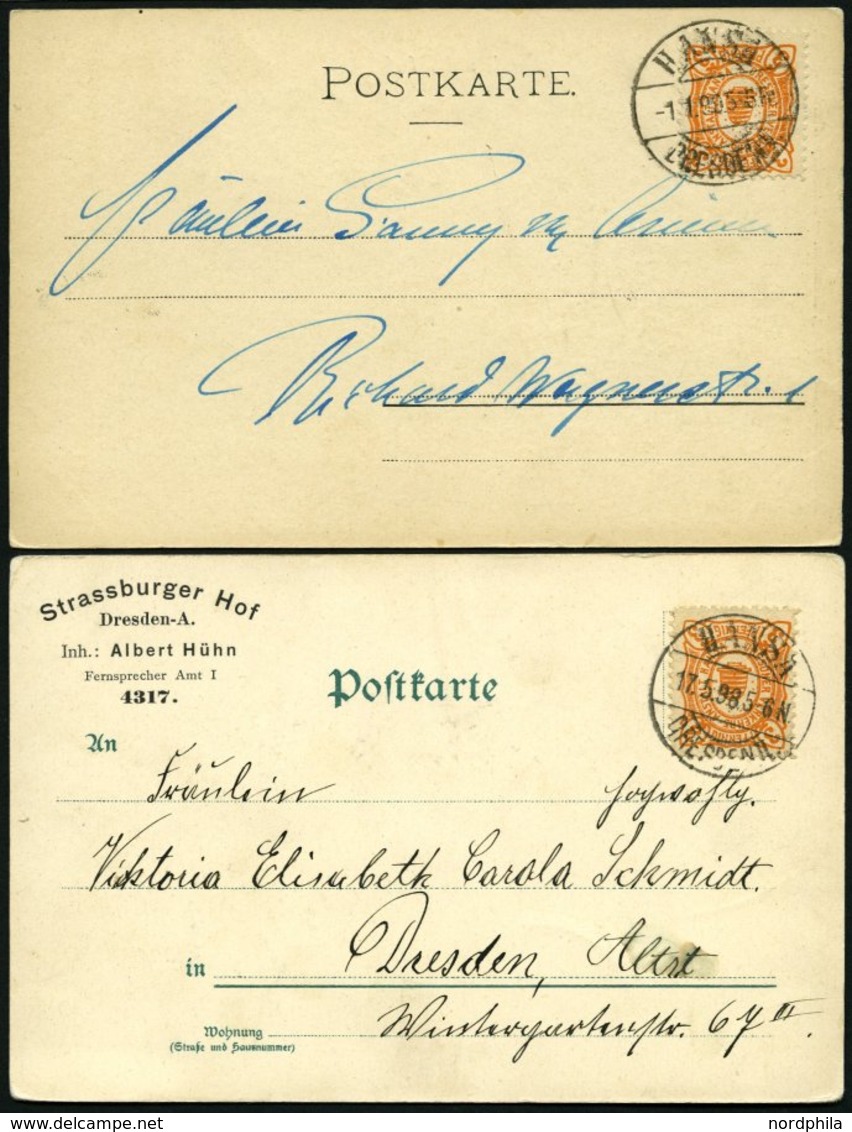 POSTKARTE.
HANSA
-1.1.98.5-6N
DRESDEN
Fräulein Fanny
Richard Wagnerstr. 1
Strassburger Hof
Dresden-A.
Inh.: Albert Hühn
Fernsprecher Amt I
4317.
Postkarte
HANSA
17.5.98.5-6N
DRESDEN
An
Fräulein Hochwohlg.
Viktoria Elisabeth Carola Schmidt.
in Dresden, Altst
Wohnung Wintergartenstr. 67 III.
(Straße und Hausnummer)
nordphila